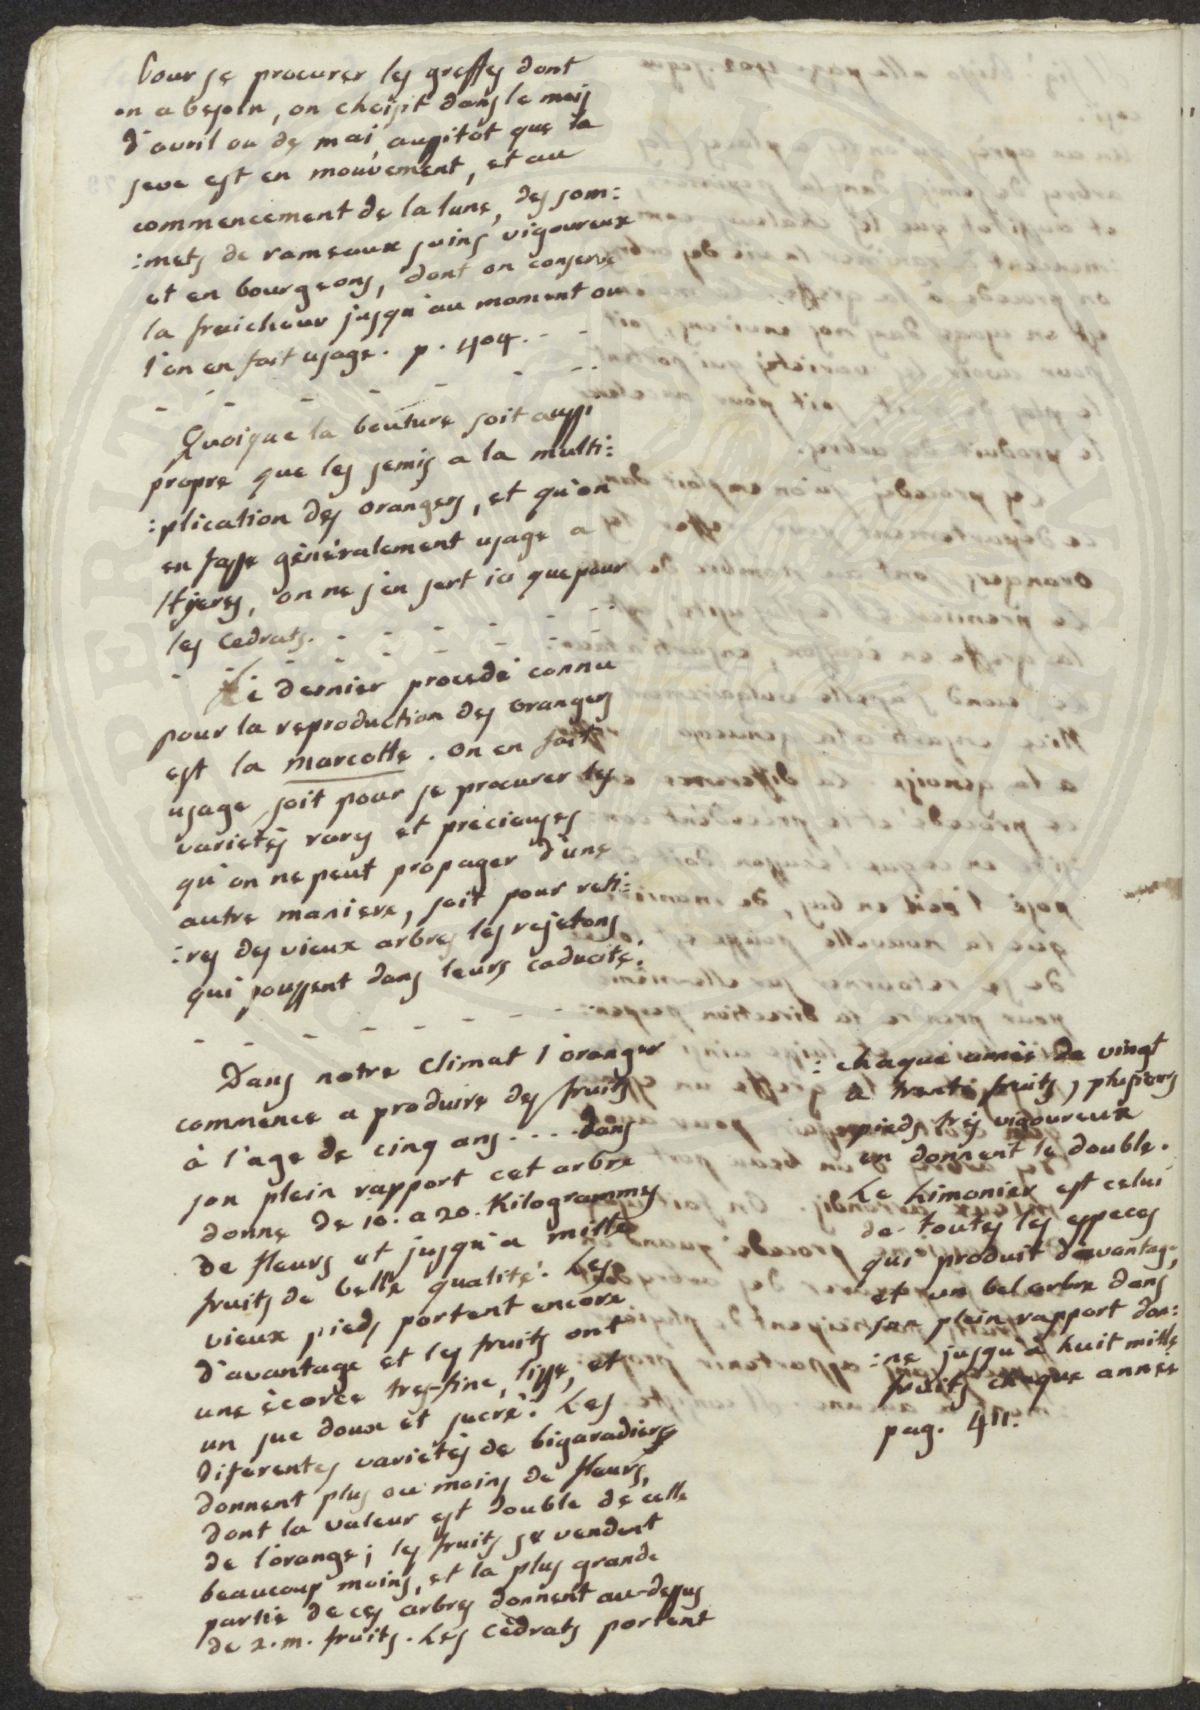 Pour se procurer les greffes dont
on a besoin, on choisit dans le mois
d'avril ou de mai aussitôt que la
seve est en mouvement, et au
commencement de la lune, des som:
:mets de rameaux sains vigoureux
et en bourgeons, dont on conserve
la fraicheur jusqu'au moment ou
l'on en fait usage. p. 404. - -
- - - - - - - -
Quoique la bouture soit aussi
propre que les semis a la multi:
:plication des orangers, et qu'on
en fasse généralement usage a
Hyeres, on ne s'en sert ici que pour
les cedrats. - - - - - -
- - - - - - -
Le dernier procedé connu
pour la reproduction des orangers
est la marcotte. On en fait
usage soit pour se procurer les
varietés rares et precieuses
qu'on ne peut propager d'une
autre maniere, soit pour reti:
:res des vieux arbres les rejetons
qui poussent dans leurs caducité.
- - - - - - - -
Dans notre climat l'oranger
commence a produire des fruits
à l'age de cinq ans . . . . dans
son plein rapport cet arbre
donne de 10. a 20. Kilogrammes
de fleurs et jusqu'a mille
fruits de belle qualité. Les
vieux pieds portent encore
d'avantage et les fruits ont
une écorce tres-fine, lisse, et
un suc doux et sucré. Les
diferentes varietés de bigaradiers
donnent plus ou moins de fleurs,
dont la valeur est double de celle
de l'orange; les fruits se vendent
beaucoup moins, et la plus grande
partie de ces arbres donnent au-dessus
de 2. m. fruits. Les cèdrats portent
: chaque année de vingt
a trente fruits, plusieurs
pieds très vigoureux
en donnent le double.
Le Limonier est celui
de toutes les especes
qui produit davantage,
et un bel arbre dans
son plein rapport don:
:ne jusqu'à huit mille
fruits chaque année
pag. 411.